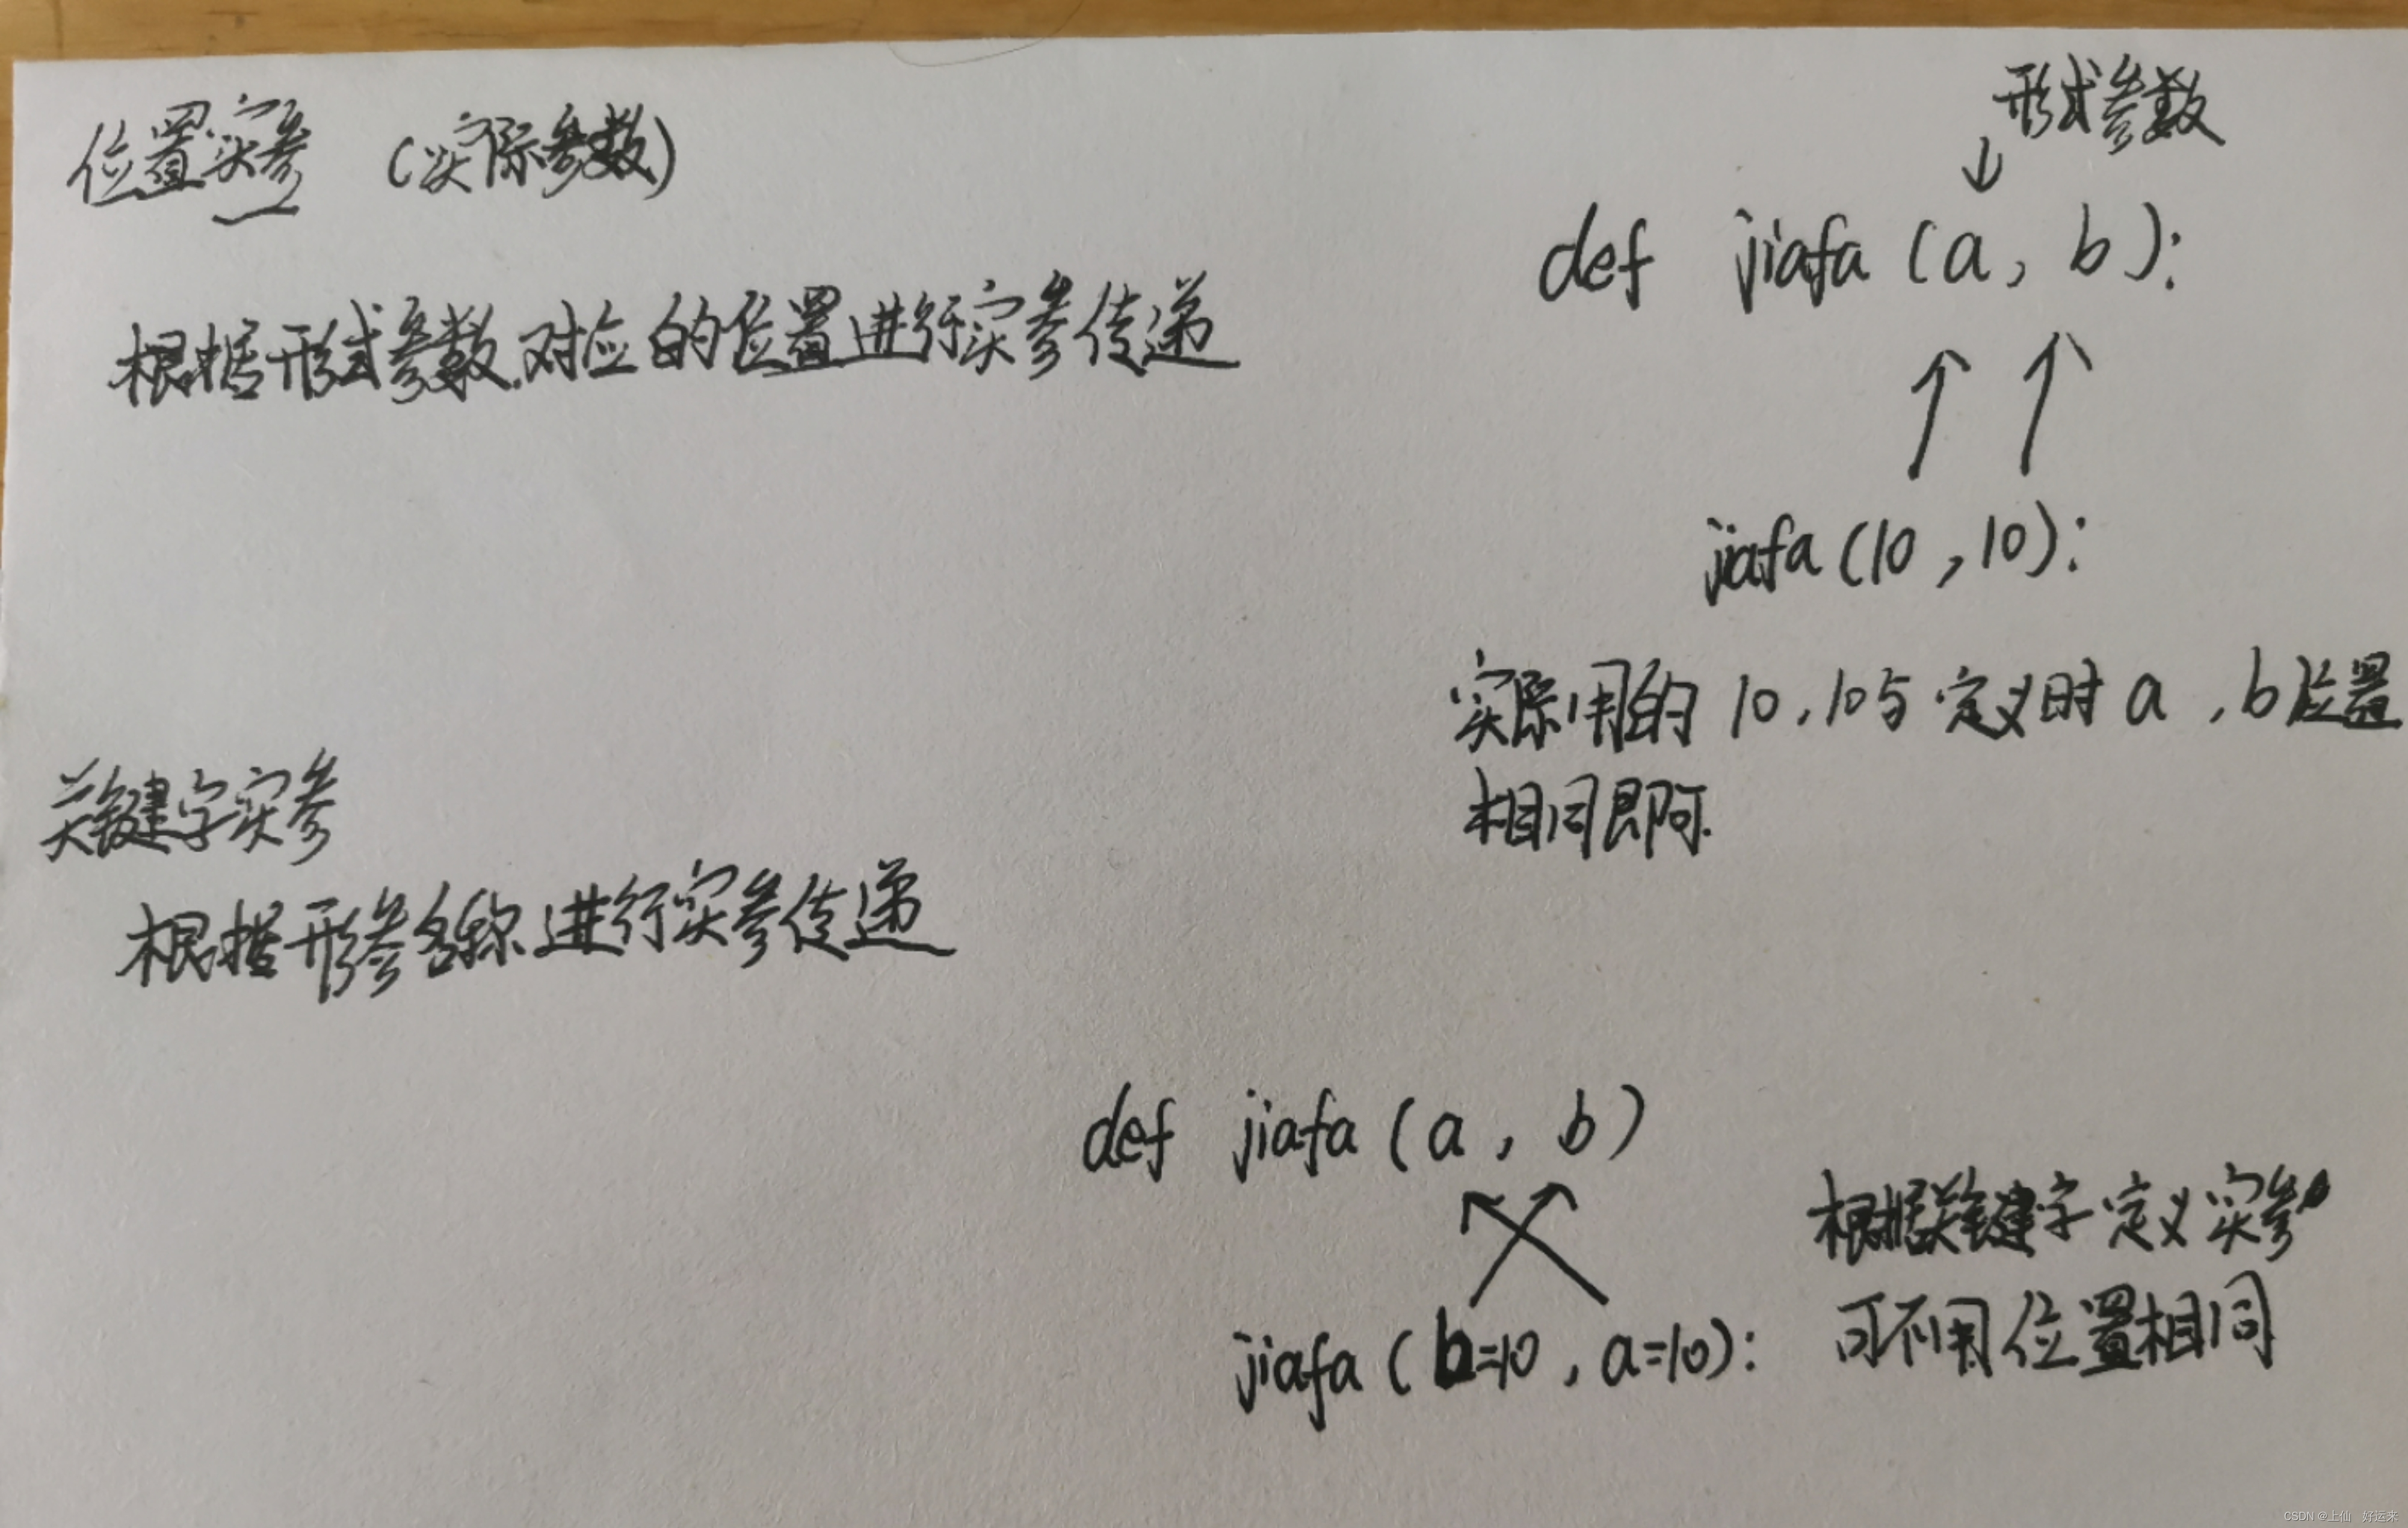 位置实参 (实际参数)
根据形式参数对应的位置进行实参传递
形式参数
↓
def jiafa (a, b):
jiafa (10, 10):
实际用的 10, 10与 定义时 a, b位置
相同即可.
关键字实参
根据形参名称进行实参传递
def jiafa (a, b)
jiafa (b=10, a=10):
根据关键字定义实参
可不用位置相同
CSDN @上仙 好运来